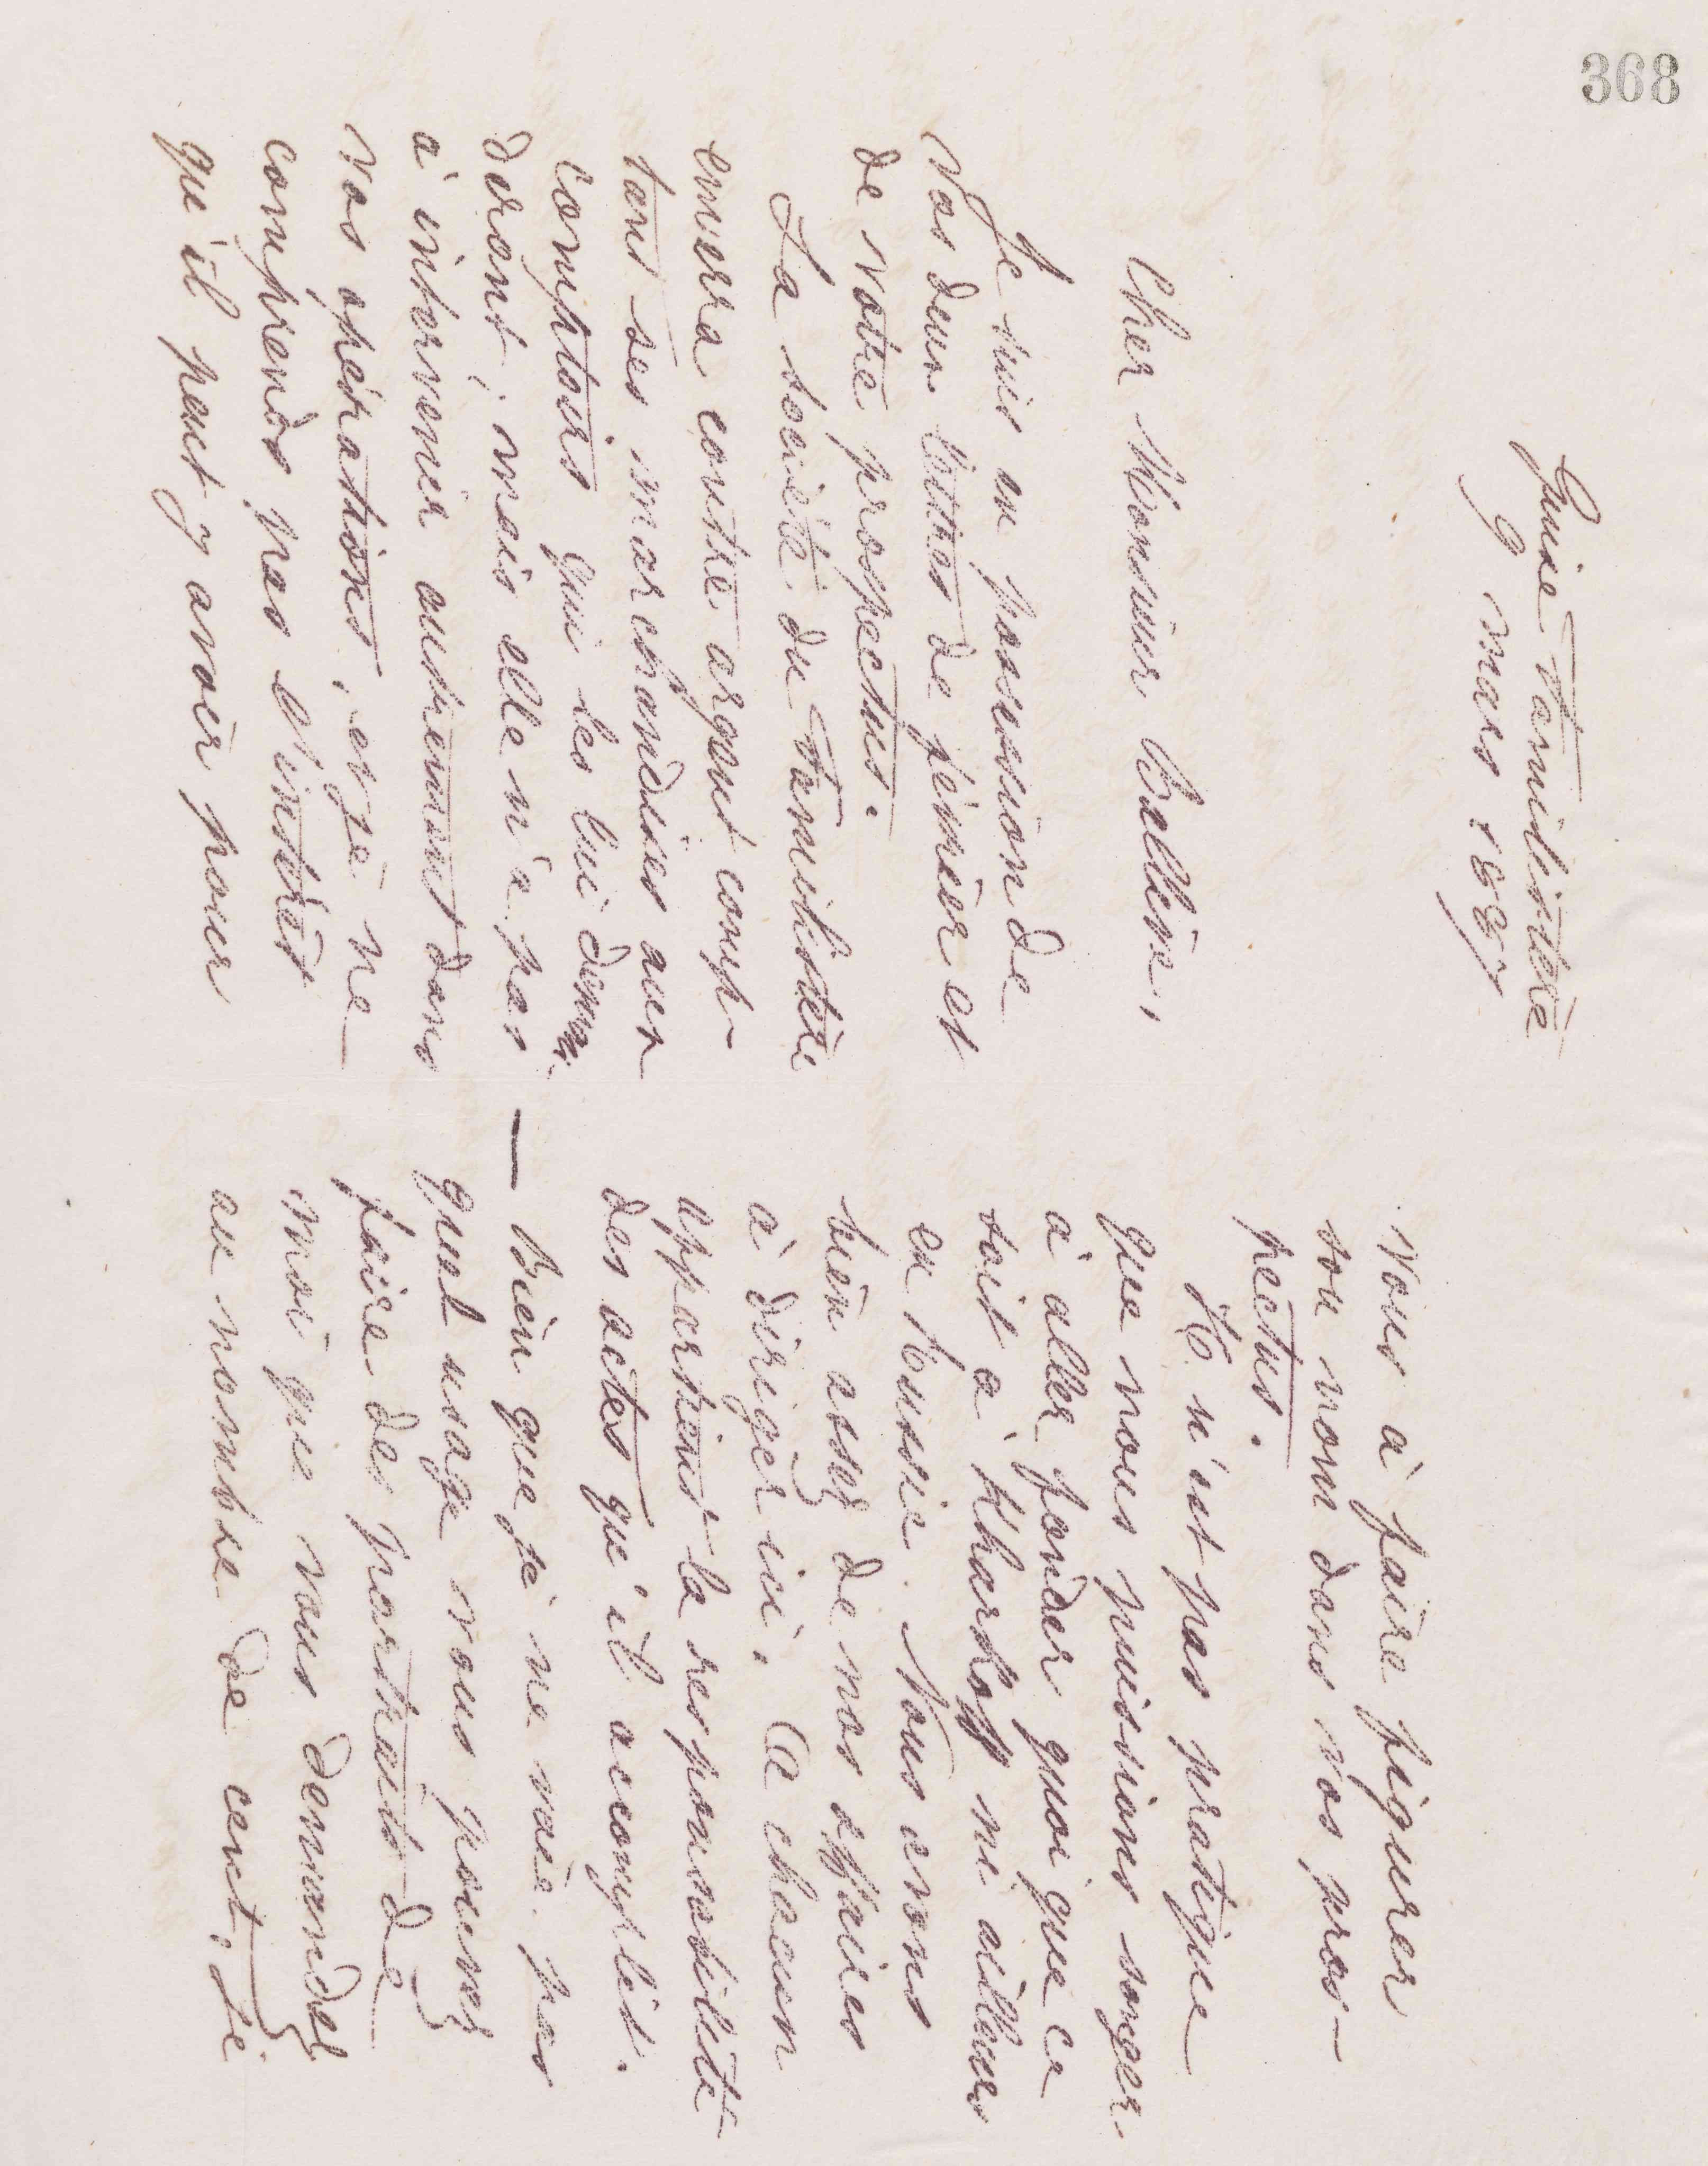 368
Guise Familistère
9 mars 1887
Cher Monsieur Ballin,
Je suis en possession de
vos deux lettres de février et
de votre prospectus.
La société du Familistère
enverra contre argent comp-
tant ses marchandises aux
comptoirs qui les lui deman-
deront, mais elle n'a pas
à intervenir autrement dans
vos opérations, et je ne
comprends pas l'intérêt
qu'il peut y avoir pour
vous à faire figurer
son nom dans vos pros-
pectus.
Il n'est pas pratique
que nous puissions songer
à aller fonder quoi que ce
soit à Kharkoff ni ailleurs
en Russie. Nous avons
bien assez de nos affaires
à diriger ici. A chacun
appartient la responsabilité
des actes qu'il accomplit.
— Bien que je ne voie pas
quel usage vous pouvez
faire des portraits de
moi que vous demandez
au nombre de cent, je